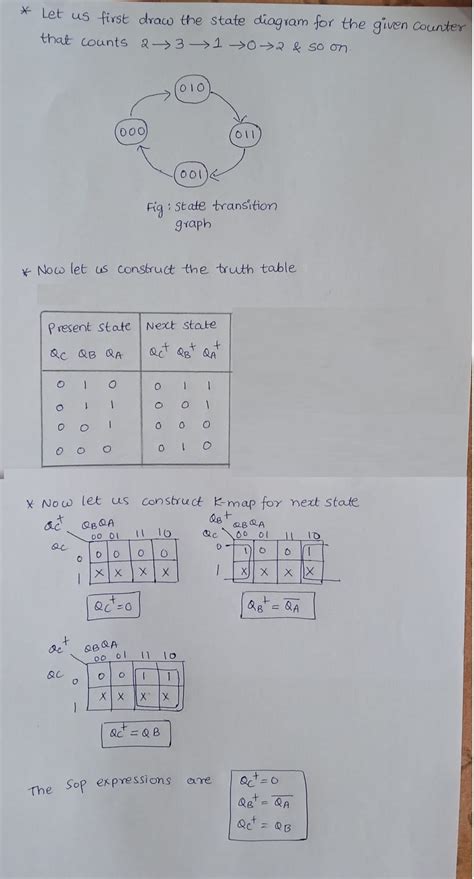 * Let us first draw the state diagram for the given counter
that counts 2→3→1→0→2 & so on
010
000
011
001
Fig: State transition
graph
* Now let us construct the truth table
Present State Next state
QC QB QA QC⁺ QB⁺ QA⁺
0 1 0 0 1 1
0 1 1 0 0 1
0 0 1 0 0 0
0 0 0 0 1 0
* Now let us construct K-map for next state
QC⁺ QBQA QB⁺ QBQA
QC 00 01 11 10 QC 00 01 11 10
0 0 0 0 0 0 1 0 0 1
1 X X X X 1 X X X X
QC⁺=0 QB⁺ = Q̅A̅
QC⁺ QBQA
00 01 11 10
QC 0 0 0 1 1
1 X X X X
QC⁺ = QB
The SOP expressions are
QC⁺=0
QB⁺ = Q̅A̅
QC⁺ = QB